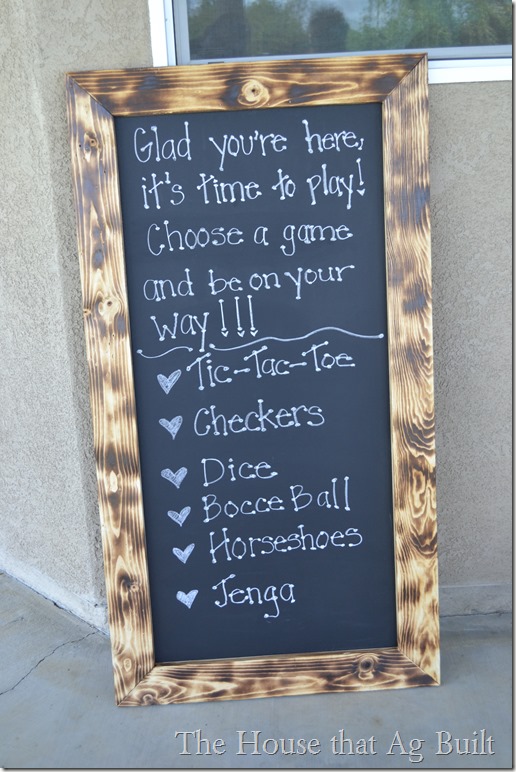 Glad you're here,
it's time to play!
Choose a game
and be on your
way!!!
Tic-Tac-Toe
Checkers
Dice
Bocce Ball
Horseshoes
Jenga
The House that Ag Built